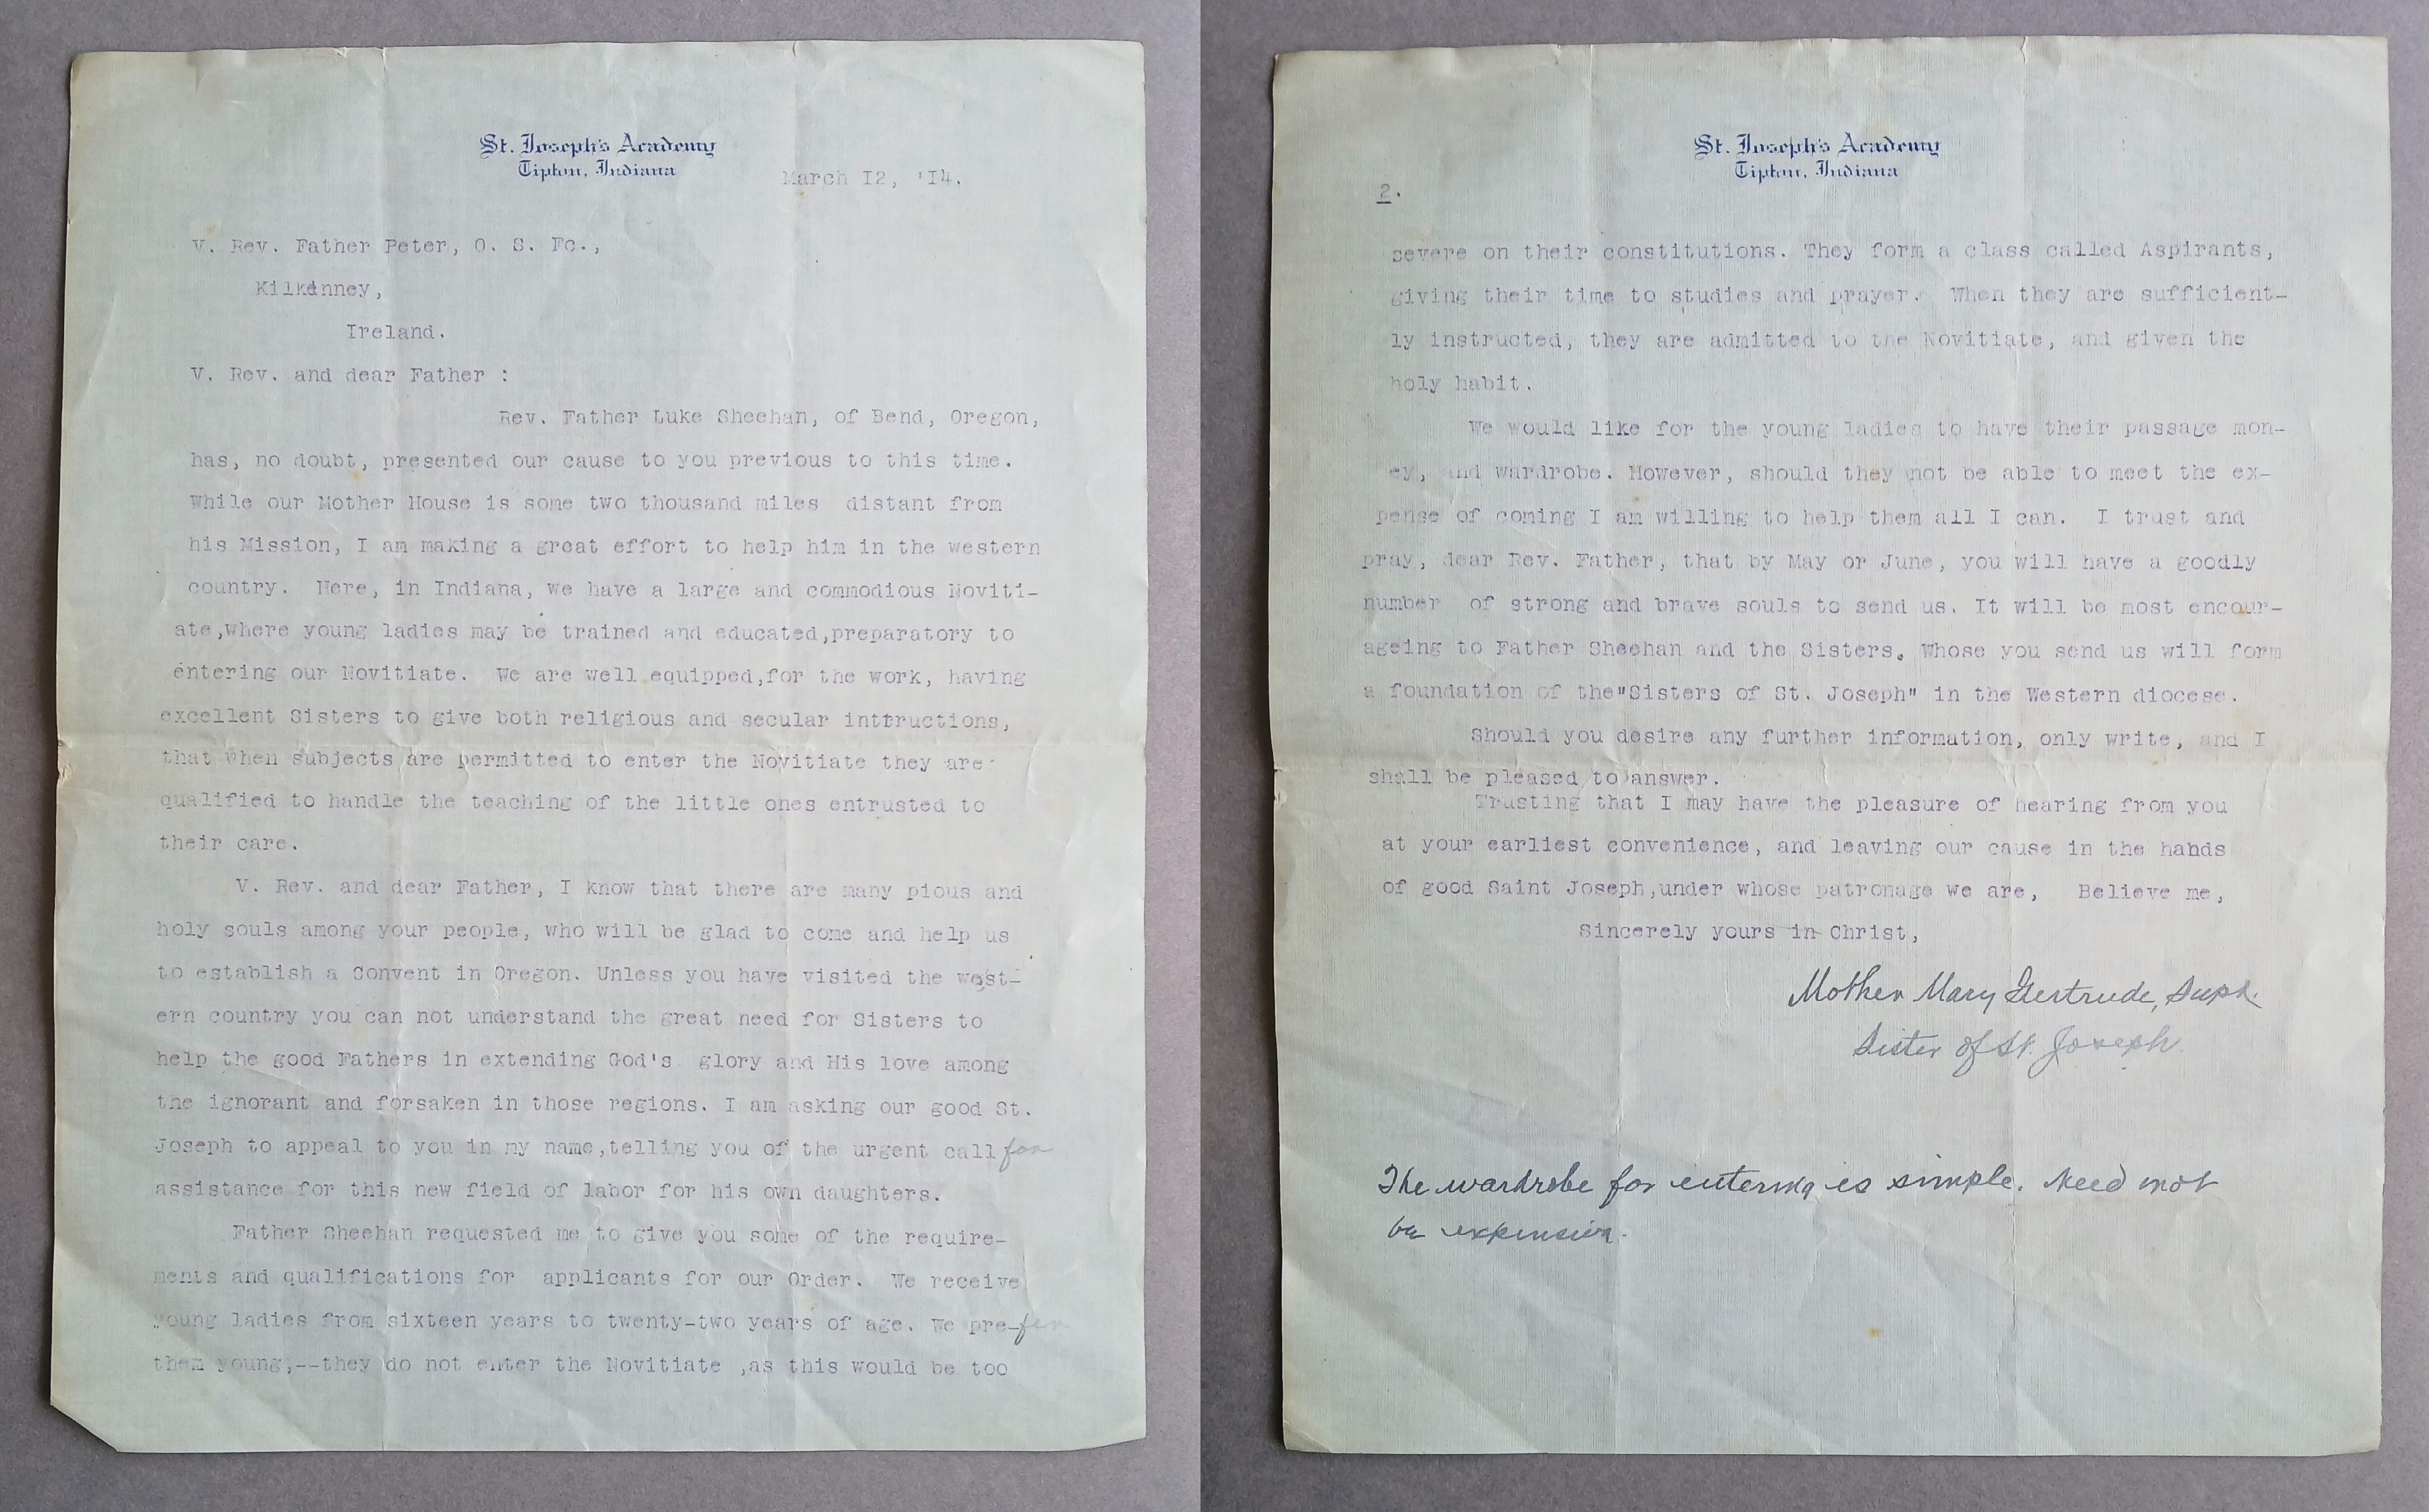 St. Joseph's Academy
Tipton, Indiana
March I2, 'I4.
V. Rev. Father Peter, O. S. Fc.,
Kilkinney,
Ireland.
V. Rev. and dear Father :
Rev. Father Luke Sheehan, of Bend, Oregon,
has, no doubt, presented our cause to you previous to this time.
While our Mother House is some two thousand miles distant from
his Mission, I am making a great effort to help him in the western
country. Here, in Indiana, we have a large and commodious Noviti-
ate,where young ladies may be trained and educated,preparatory to
entering our Novitiate. We are well equipped,for the work, having
excellent Sisters to give both religious and secular inttructions,
that when subjects are permitted to enter the Novitiate they are
qualified to handle the teaching of the little ones entrusted to
their care.
V. Rev. and dear Father, I know that there are many pious and
holy souls among your people, who will be glad to come and help us
to establish a Convent in Oregon. Unless you have visited the west-
ern country you can not understand the great need for Sisters to
help the good Fathers in extending God's glory and His love among
the ignorant and forsaken in those regions. I am asking our good St.
Joseph to appeal to you in my name,telling you of the urgent call for
assistance for this new field of labor for his own daughters.
Father Sheehan requested me to give you some of the require-
ments and qualifications for applicants for our Order. We receive
young ladies from sixteen years to twenty-two years of age. We pre-fer
them young,--they do not enter the Novitiate ,as this would be too
St. Joseph's Academy
Tipton, Indiana
2.
severe on their constitutions. They form a class called Aspirants,
giving their time to studies and prayer. When they are sufficient-
ly instructed, they are admitted to the Novitiate, and given the
holy habit.
We would like for the young ladies to have their passage mon-
ey, and wardrobe. However, should they not be able to meet the ex-
pense of coming I am willing to help them all I can. I trust and
pray, dear Rev. Father, that by May or June, you will have a goodly
number of strong and brave souls to send us. It will be most encour-
ageing to Father Sheehan and the Sisters. Whose you send us will form
a foundation of the"Sisters of St. Joseph" in the Western diocese.
Should you desire any further information, only write, and I
shall be pleased to answer.
Trusting that I may have the pleasure of hearing from you
at your earliest convenience, and leaving our cause in the hands
of good Saint Joseph,under whose patronage we are, Believe me,
Sincerely yours in Christ,
Mother Mary Gertrude, Supr.
Sister of St. Joseph
The wardrobe for entering is simple. Need not
be expensive.